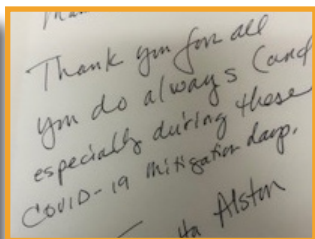 Thank you for all
you do always (and
especially during these
COVID-19 mitigation days.
Alston